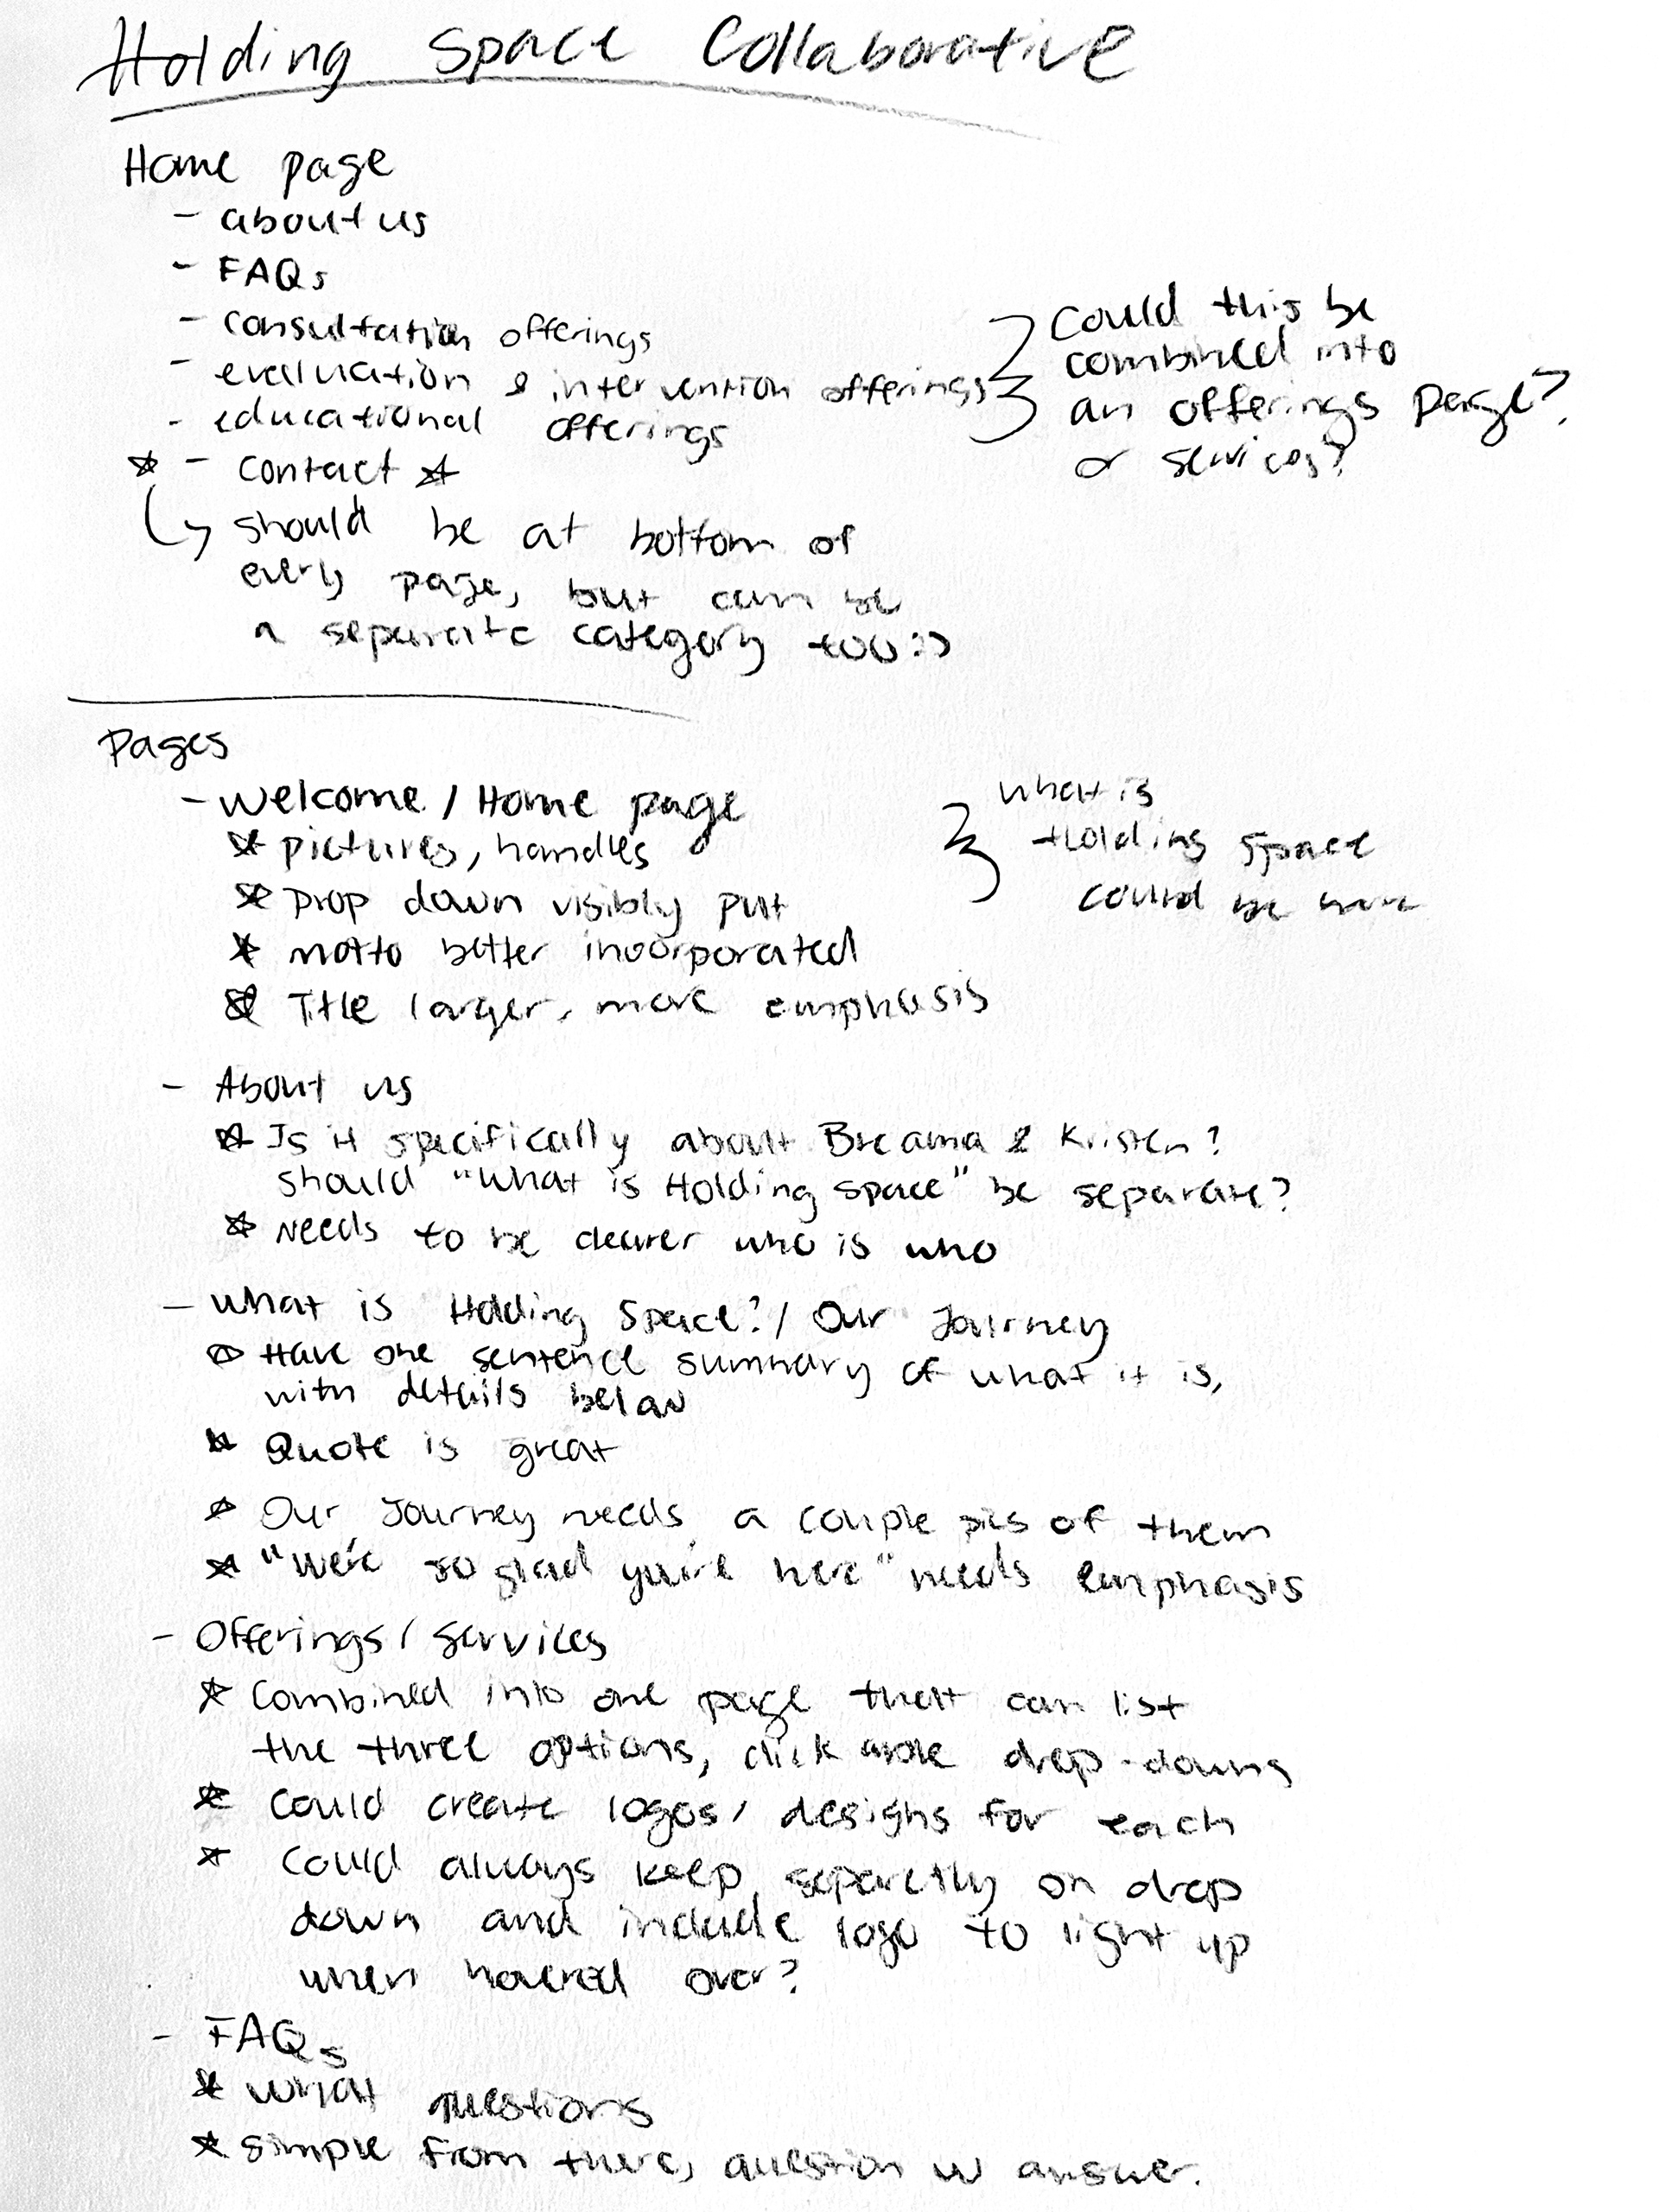 Holding Space Collaborative
Home page
- about us
- FAQs
- consultation offerings
- evaluation & intervention offerings
- educational offerings
Could this be
combined into
an offerings page?
or services?
☆ - contact ☆
↳ should be at bottom of
every page, but can be
a separate category too :)
Pages
- Welcome / Home page
☆ pictures, handles
☆ Drop down visibly put
☆ motto better incorporated
☆ Title larger, more emphasis
what is
Holding Space
could be here
- About us
☆ Is it specifically about Breanna & Kristen?
should "What is Holding Space" be separate?
☆ Needs to be clearer who is who
- What is Holding Space? / Our Journey
☆ Have one sentence summary of what it is,
with details below
☆ Quote is great
☆ Our Journey needs a couple pics of them
☆ "We're so glad you're here" needs emphasis
- Offerings / Services
☆ Combined into one page that can list
the three options, clickable drop-downs
☆ Could create logos / designs for each
☆ Could always keep separetly on drop
down and include logo to light up
when hovered over?
- FAQs
☆ What questions
☆ Simple from there, question w answer.